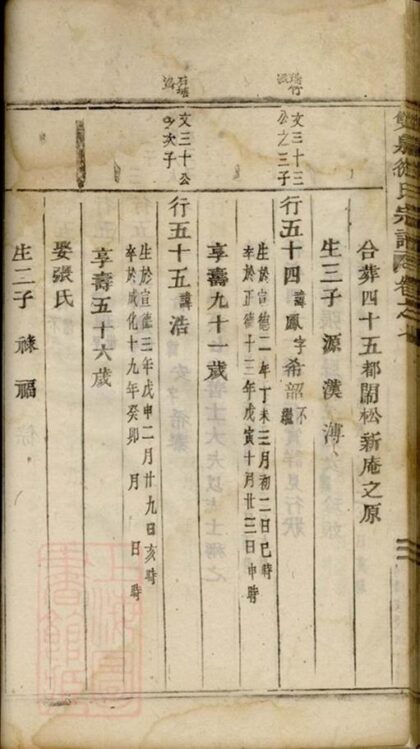 雙泉徐氏宗譜
合葬四十五都閙松新庵之原
生三子 源 漢 溥
文三十三
公之三子
行五十四 諱鳳字希韶
生於宣德二年丁未三月初二日巳時
卒於正德十三年戊寅十月廿二日申時
享壽九十一歲
文三十公
之次子
行五十五 諱浩
生於宣德三年戊申二月廿九日亥時
卒於成化十九年癸卯 月 日 時
享壽五十六歲
娶張氏
生二子 祿 福
上海圖書館藏